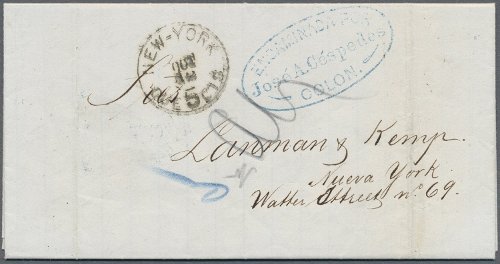 NEW-YORK
OCT
5 CTS
ENCAMINADA POR
José A. Céspedes
COLON.
Lanman & Kemp.
Nueva York.
Watter Street nº 69.